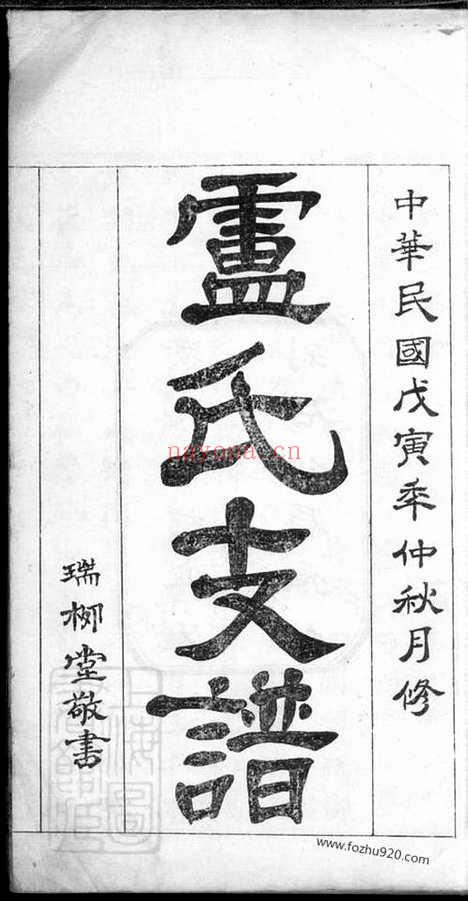 中華民國戊寅年仲秋月修
盧氏支譜
瑞柳堂敬書
nayona.cn
www.fozhu920.com